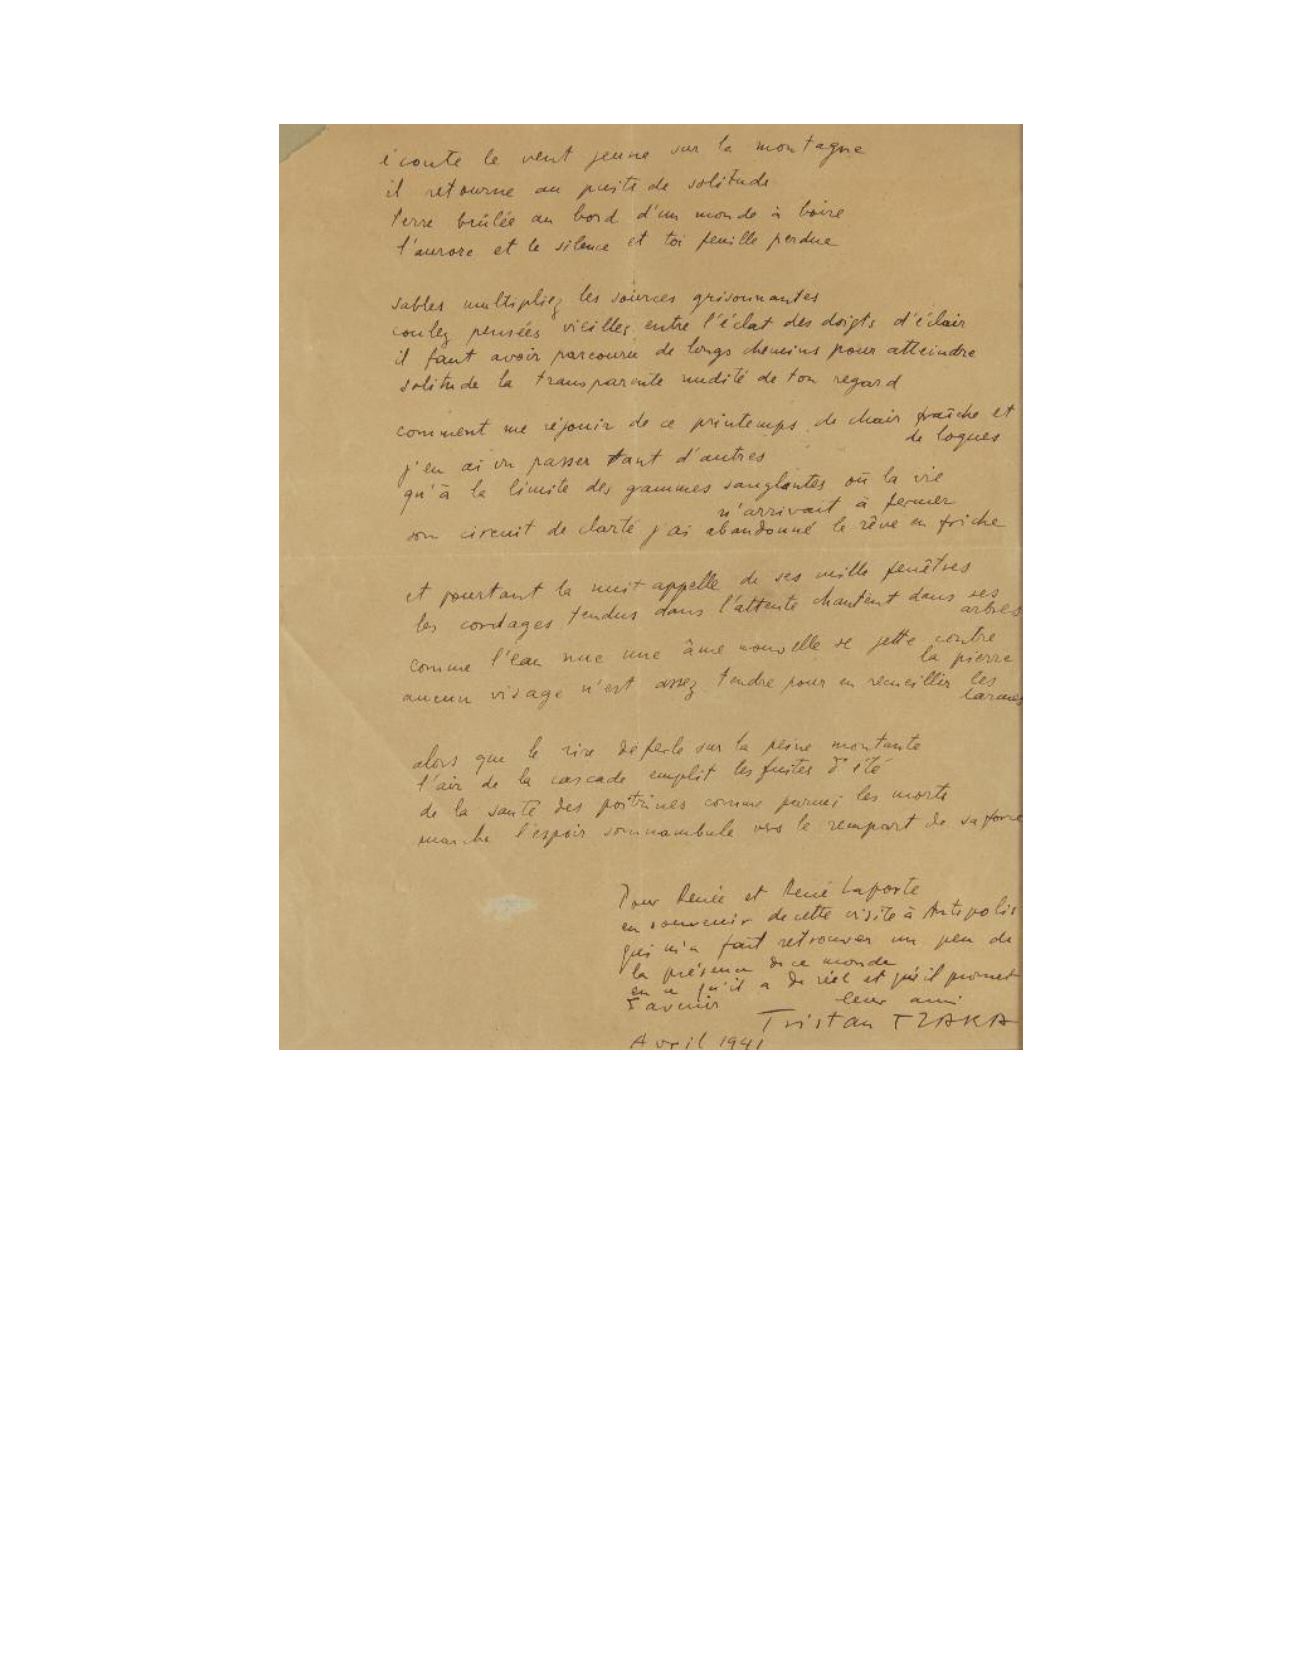 écoute le vent jeune sur la montagne
il retourne au puits de solitude
terre brûlée au bord d'un monde à boire
l'aurore et le silence et toi feuille perdue
sables multipliez les sources grisonnantes
coulez pensées vieilles entre l'éclat des doigts d'éclair
il faut avoir parcouru de longs chemins pour atteindre
solitude la transparente nudité de ton regard
comment me réjouir de ce printemps de chair fraîche et
de loques
j'en ai vu passer tant d'autres
qu'à la limite des gammes sanglantes où la vie
n'arrivait à fermer
son circuit de clarté j'ai abandonné le rêve en friche
et pourtant la nuit appelle de ses mille fenêtres
les cordages tendus dans l'attente chantent dans ses
arbres
comme l'eau nue une âme nouvelle se jette contre
la pierre
aucun visage n'est assez tendre pour en recueillir les
larmes
alors que le rire déferle sur la peine montante
l'air de la cascade emplit les fuites d'été
de la santé des poitrines comme parmi les morts
marche l'espoir somnambule vers le rempart de sa force
Pour Renée et René Laporte
en souvenir de cette visite à Antipolis
qui m'a fait retrouver un peu de
la présence de ce monde
en ce qu'il a de réel et qu'il promet
d'avenir leur ami
Tristan TZARA
Avril 1941